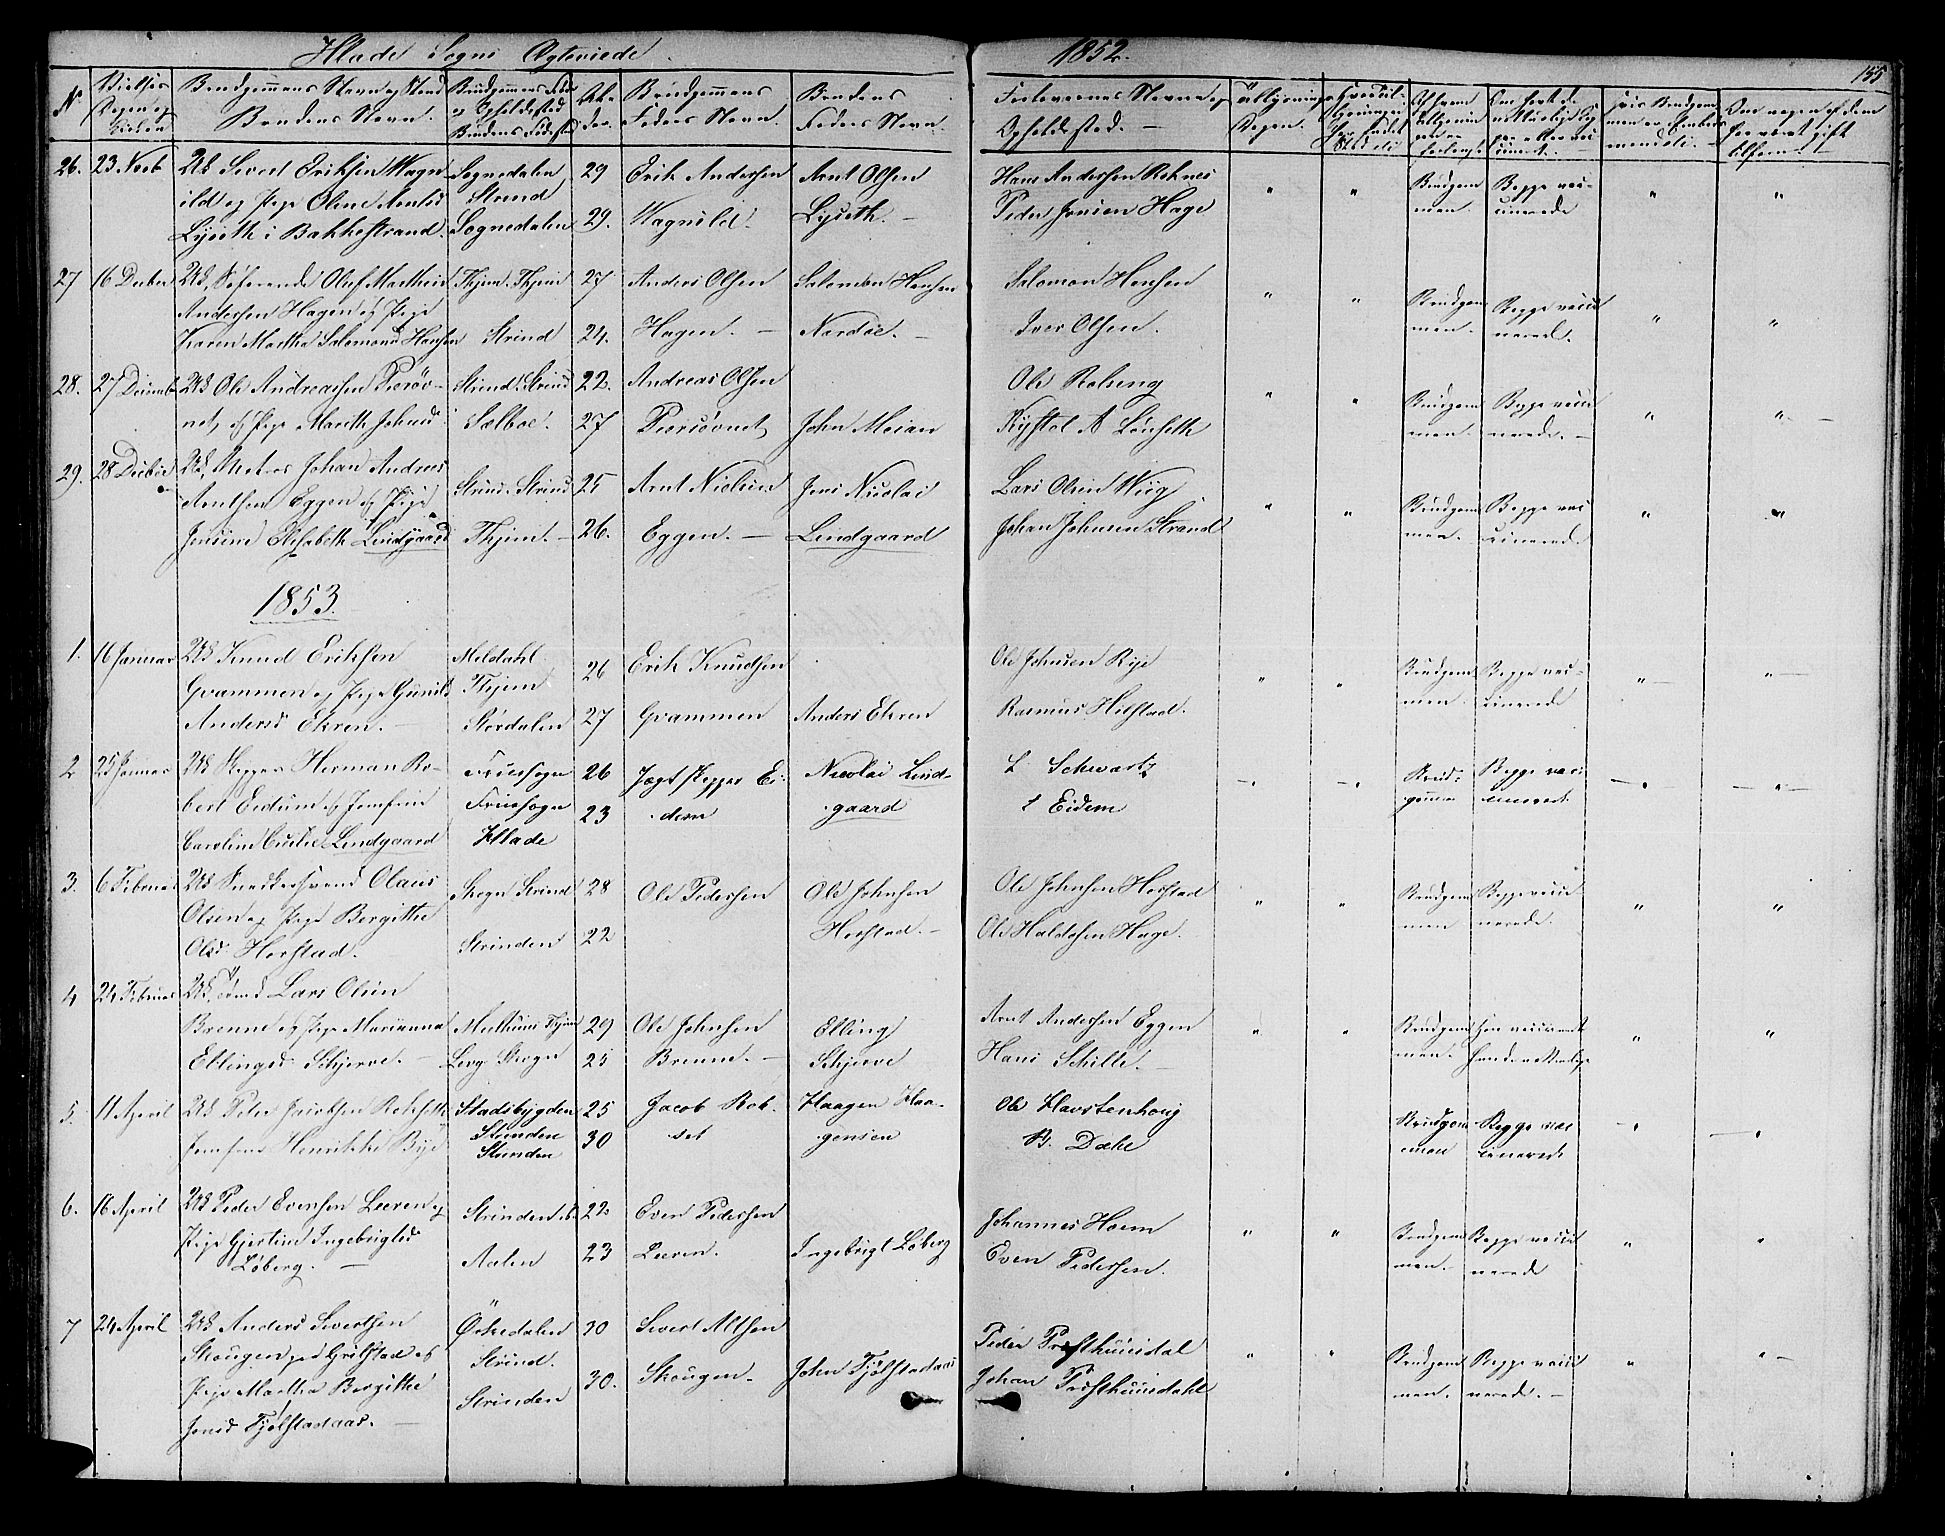 Hlade Sogns Ægteviede. 1852.
155
No
Brudgommens Navn og Stand
Brudens Navn.
Alder.
Brudgommens
Faders Navn.
Brudens
Faders Navn.
Forlovernes Navne og
Opholdssted.
26. 23 Novb
Sivert Eriksen Wagn
ild og Pige Oline Arntsd
Lyseth i Bakkestrand.
Sognedalen
Strind
Sognedalen
29
29.
Erik Andersen
Wagnild.
Arnt Olsen
Lyseth.
Hans Andersen Roknes
Peder Jensen Hage
Brudgom
men.
Begge vac-
cinerede
27 16 Decber
Andersen Hagen og Pige
Karen Martha Salomonsd Hansen
Thjem. Thjem
Strind
27
24.
Anders Olsen
Hagen.
Salomon Hansen
Nardoe.
Salomon Hansen
Iver Olsen.
Brudgom
men.
Begge vacci
nerede.
28. 27 Decemb
Ole Andreassen Persøv-
net, og Pige Mareth Johnsd
Strind. Strind
Sælboe.
22.
27
Andreas Olsen
Persøvnet
John Moian
Ole Rolseng
Kystol A Lønseth
Brudgom
men.
Begge vacci
nerede.
29. 28 Decber
Johan Andreas
Arntsen Eggen og Pige
Jensine Elisabeth Lindgaard
Strind. Strind
Thjem.
25
26.
Arnt Nielsen
Eggen.
Jens Nicolai
Lindgaard
Lars Olsen Wiig
Johan Johnsen Strand
Brudgom
men.
Begge vac
cinered.
1853.
1. 16 Januar
Knud Eriksen
Gvammen og Pige Gunild
Andersd Ekren.
Meldahl
Thjem
Størdalen
26
27
Erik Knudsen
Gvammen
Anders Ekren
Ole Johnsen Rye
Rasmus Hilstad.
Brudgom
men.
Begge vac-
cinerede
2 25 Januar
Skipper Herman Ro-
bert Eidum og Jomfru
Caroline Lindgaard
Fruesogn
Fruesogn
Hlade
26
23
Jægtskipper Ei
dem
Nicolai Lind-
gaard
L Schwartz
L Eidem
Brud-
gommen
Begge vac
cinerede
3. 6 Februar
Snedkersvend Olaus
Olsen og Pige Bergitthe
Olsd Horstad.
Skogn Strind
Strinden
28
22
Ole Pedersen
Ole Johnsen
Horstad.
Ole Johnsen Horstad
Ole Haldosen Hage.
Brudgom
men
Begge vacci
nerede.
4 24 Februar
Lars Olsen
Brenne og Pige Marianna
Ellingsd Schjerve.
Melhuus Thjem
Levg. Skogn
29
25
Ole Johnsen
Brenne.
Elling
Schjerve
Arnt Andersen Eggen
Hans Schille.
Brudgom
men.
5. 11 April
Peter Jacobsen Rokseth
Jomfru Henrikke Bye
Stadsbygden
Strinden
Strinden
25
30
Jacob Rok-
set
Haagen Haa-
gensen
Ole Havstenhoug
B. Dahl
Brudgom
men
Begge vac
cinerede
6. 16 April
Peder Evensen Leeren og
Pige Gjertine Ingebrigtsd
Løberg.
Strinden
Aalen
22
23
Even Pedersen
Leeren.
Ingebrigt Løberg
Johannes Hoem
Even Pedersen.
Brudgom
men.
Begge vacci
nerede
7 24 April
Anders Sivertsen
Skougen paa Grilstad og
Pige Martha Bergithe
Jonsd Fjølstadaas.
Ørkedalen
Strind.
Strinden
30
30.
Sivert Altsen
Skougen.
John Fjølstadaas
Peder Presthuusdal
Johan Presthuusdahl
Brudgom
men.
Begge vacci
nerede.